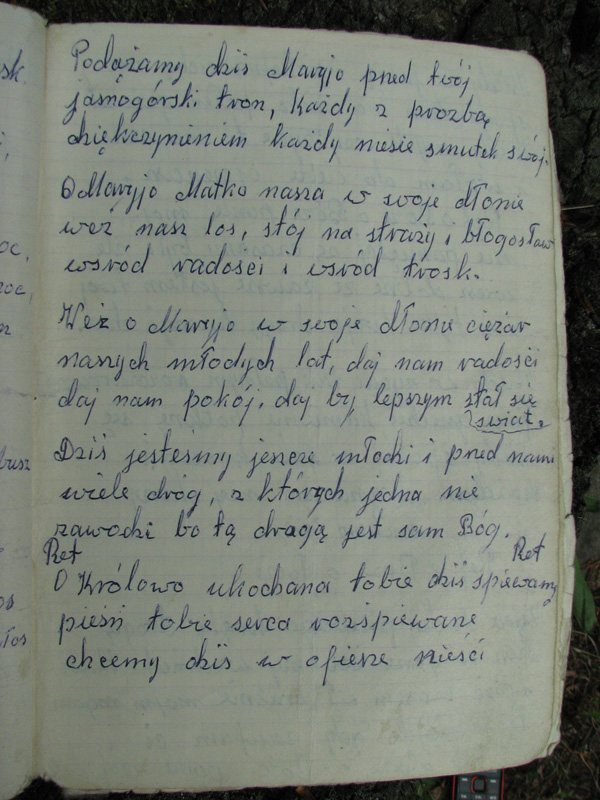 Podążamy dziś Maryjo pred twój
jasnogórski tron, każdy z prozbą,
dziękczynieniem każdy niesie smutek swój.
O Maryjo Matko nasza w swoje dłonie
weź nasz los, stój na straży i błogosław
wśród radości i wśród trosk.
Weź o Maryjo w swoje dłonie ciężar
naszych młodych lat, daj nam radości
daj nam pokój, daj by lepszym stał się
świat.
Dziś jesteśmy jeszcze młodzi i pred nami
wiele dróg, z których jedna nie
zawodzi bo tą drogą jest sam Bóg.
Ref Ref
O Królowo ukochana tobie dziś śpiewamy
pieśń tobie serca rozśpiewane
chcemy dziś w ofierze nieść